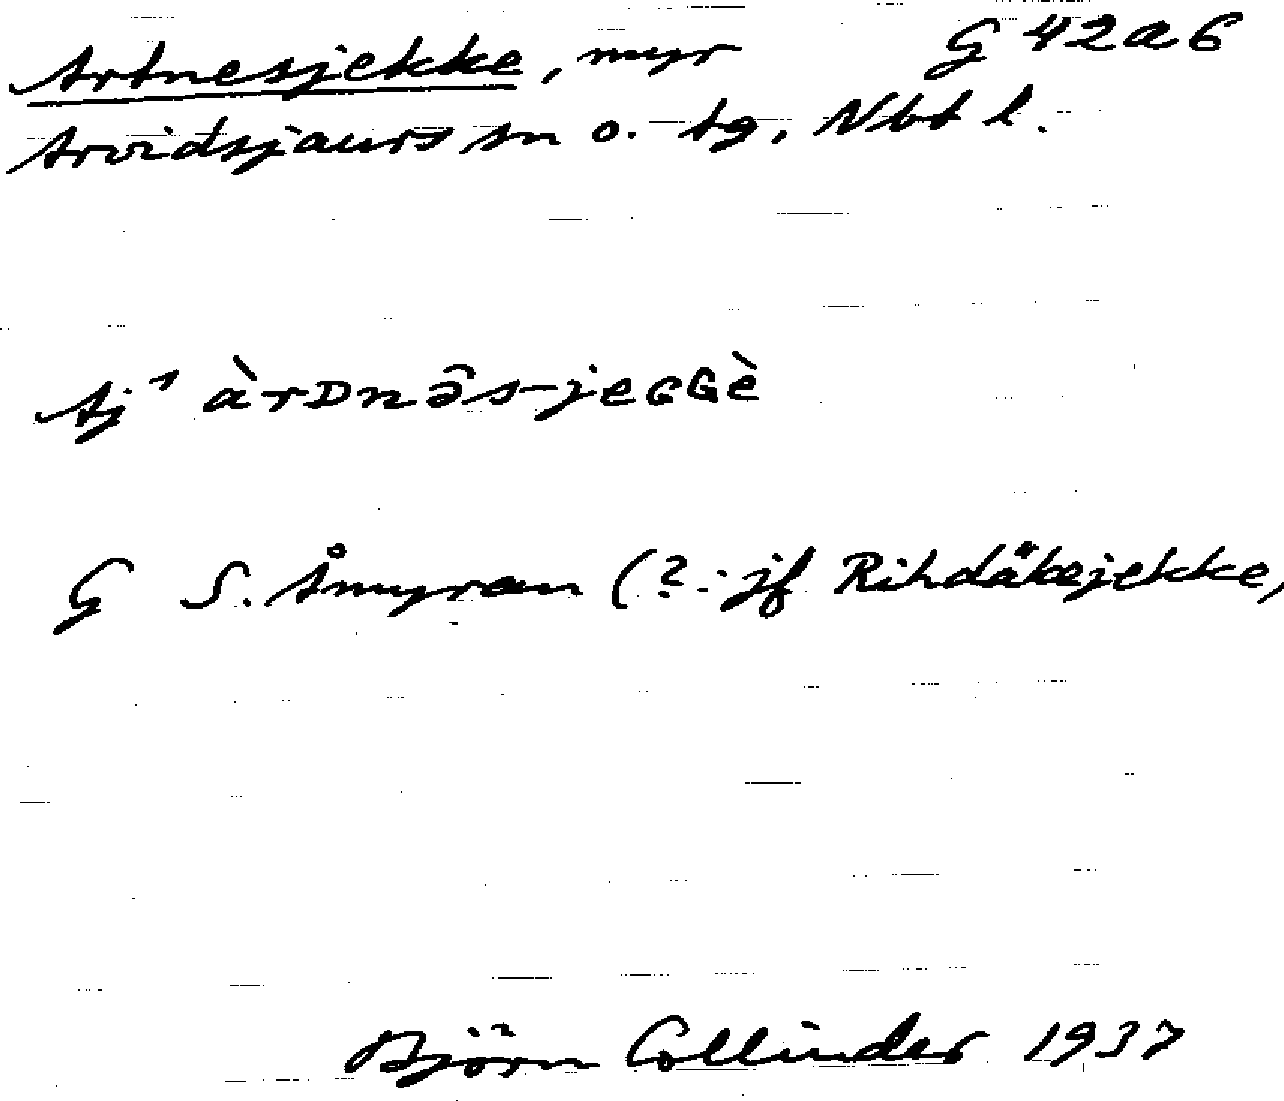 Artnesjekke, myr G 42a6
Arvidsjaurs sn o. tg, Nbt l.
Aj¹ àrDnə̑s-jeGGè
G S. Åmyran (?: jf Rihdåkejekke)
Björn Collinder 1937